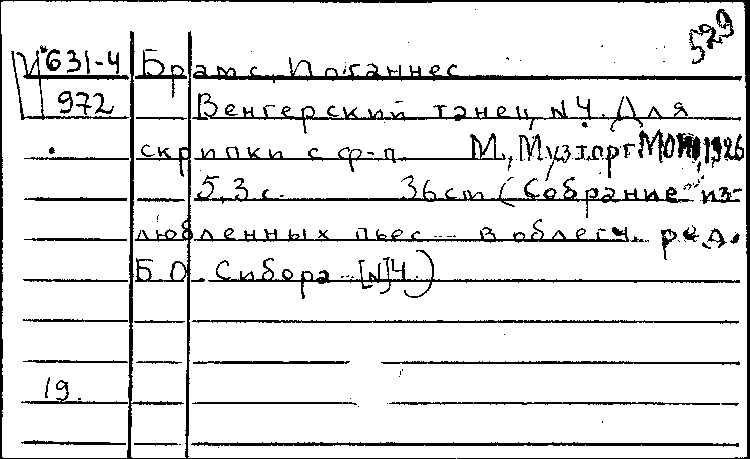 529
И 631-4 Брамс, Иоганнес
972 Венгерский танец N4. Для
скрипки с ф-п. М., Музторг МОНО, 1926
5,3 с. 36 cm (Собрание из-
любленных пьес в облегч. ред.
Б.О. Сибора [N]4.)
19.